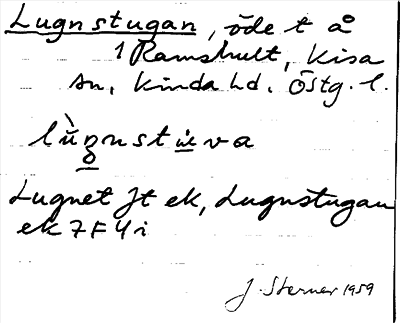 Lugnstugan, öde t å
1 Ramshult, Kisa
sn, Kinda hd. Östg. l.
lùŋnstu̇va
Lugnet Jt ek, Lugnstugan
ek 7F4i
J. Sterner 1959